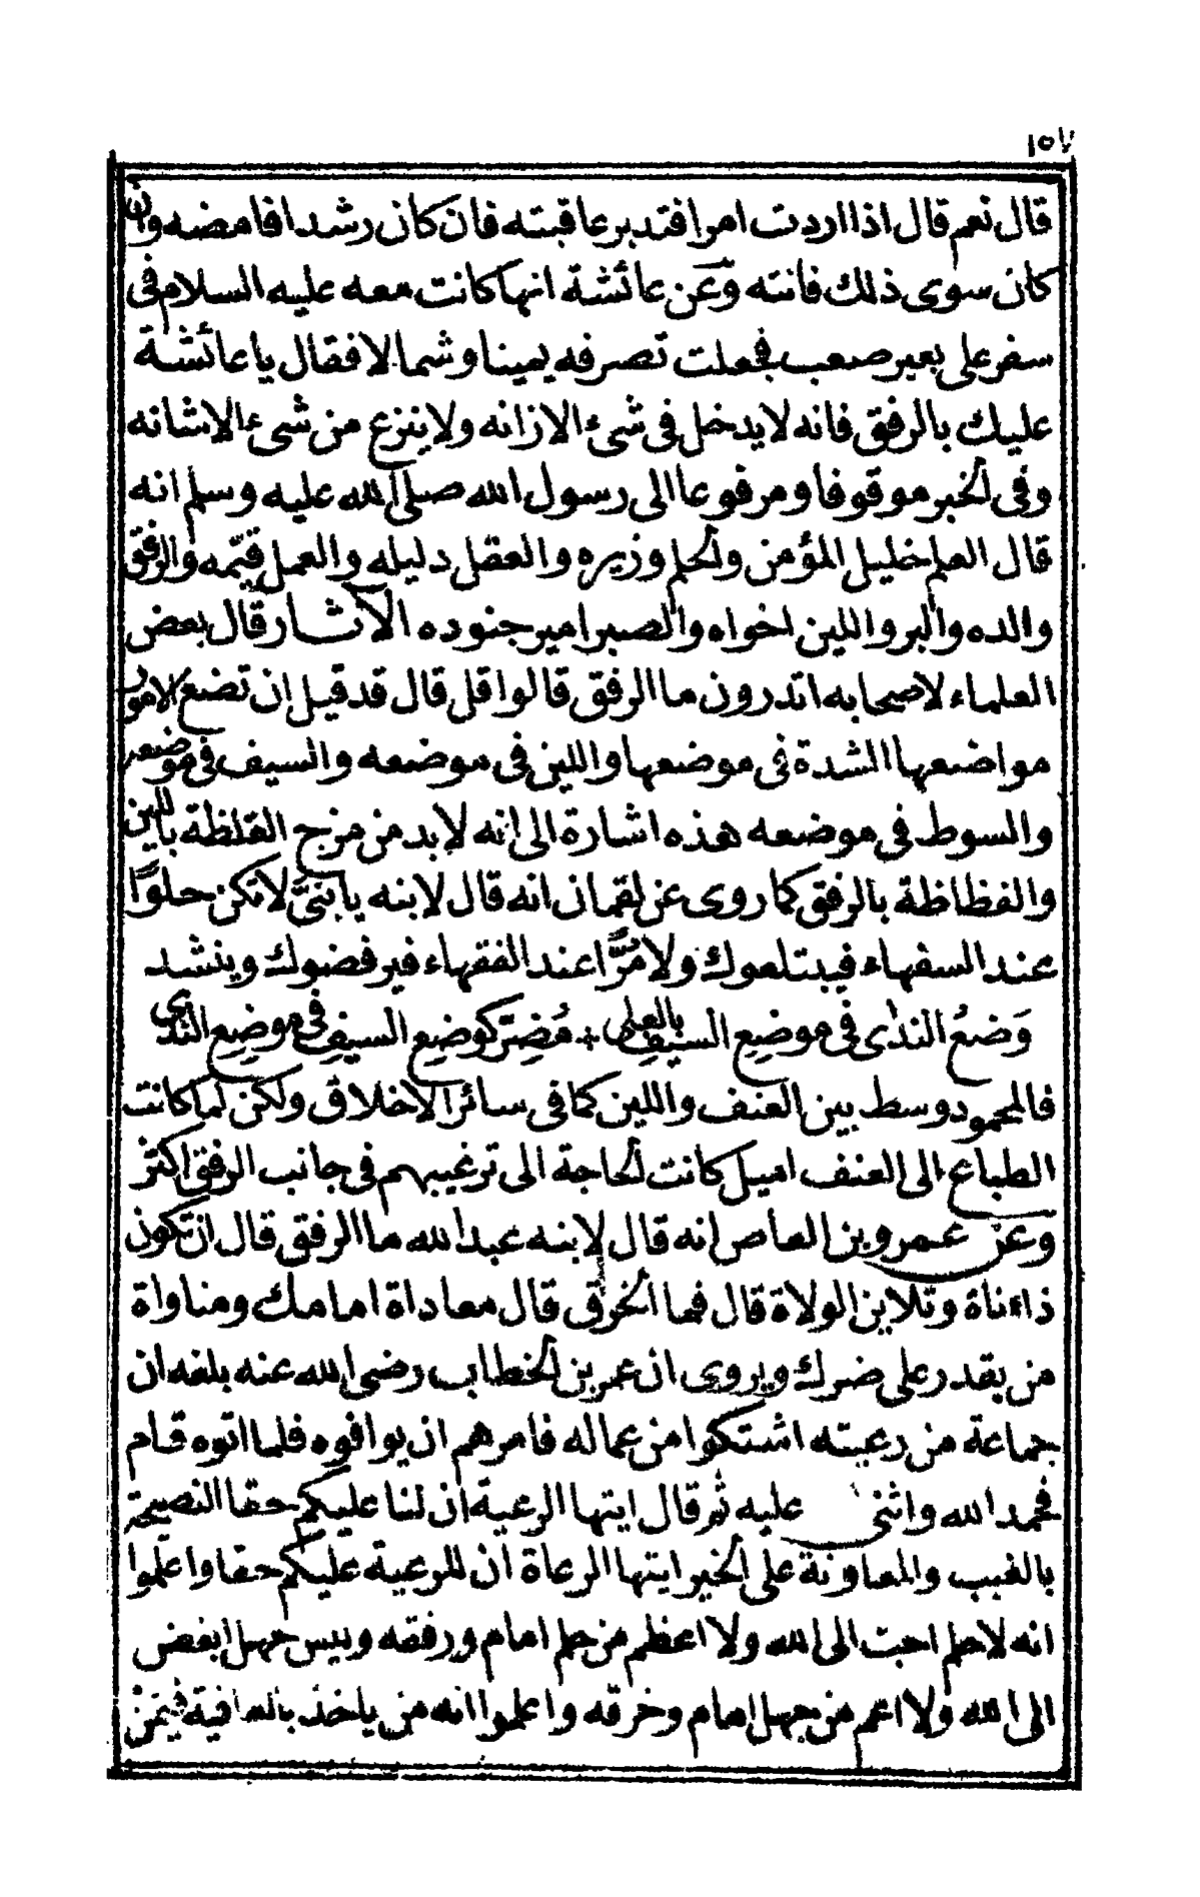 ١٥٧
قال نعم قال اذا اردت امرا فتدبر عاقبته فان كان رشدا فامضه وان
كان سوى ذلك فانته وعن عائشة انها كانت معه عليه السلام فى
سفر على بعير صعب فجعلت تصرفه يمينا وشمالا فقال يا عائشة
عليك بالرفق فانه لا يدخل فى شئ الا زانه ولا ينزع من شئ الا شانه
وفى الخبر موقوفا ومرفوعا الى رسول الله صلى الله عليه وسلم انه
قال العلم خليل المؤمن والحلم وزيره والعقل دليله والعمل قيّمه والرفق
والده والبر واللين اخواه والصبر امير جنوده الآثار قال بعض
العلماء لاصحابه اتدرون ما الرفق قالوا قل قال قد قيل ان تضع الامور
مواضعها الشدة فى موضعها واللين فى موضعه والسيف فى موضعه
والسوط فى موضعه هذه اشارة الى انه لا بد من مزج الغلظة باللين
والفظاظة بالرفق كما روى عن لقمان انه قال لابنه يا بنىّ لا تكن حلوًا
عند السفهاء فيبتلعوك ولا مُرًّا عند الفقهاء فيرفضوك وينشد
وَضعُ الندٰى فى موضِعِ السيفِ بالعلى + مُضِرّ كوضعِ السيفِ فى موضِعِ الندٰى
فالمحمود وسط بين العنف واللين كما فى سائر الاخلاق ولكن لما كانت
الطباع الى العنف اميل كانت الحاجة الى ترغيبهم فى جانب الرفق اكثر
وعن عمرو بن العاص انه قال لابنه عبد الله ما الرفق قال ان تكون
ذا ءناة وتلاين الولاة قال فما الخرق قال معاداة امامك ومناواة
من يقدر على ضرك ويروى ان عمر بن الخطاب رضى الله عنه بلغه ان
جماعة من رعيته اشتكوا من عماله فامرهم ان يوافوه فلما اتوه قام
فحمد الله واثنى عليه ثم قال ايتها الرعية ان لنا عليكم حقا النصيحة
بالغيب والمعاونة على الخير ايتها الرعاة ان للرعية عليكم حقا واعلموا
انه لا حلم احب الى الله ولا اعظم من حلم امام ورفقه وليس جهل ابغض
الى الله ولا اعم من جهل امام وخرقه واعلموا انه من ياخذ بالعافية فيمن